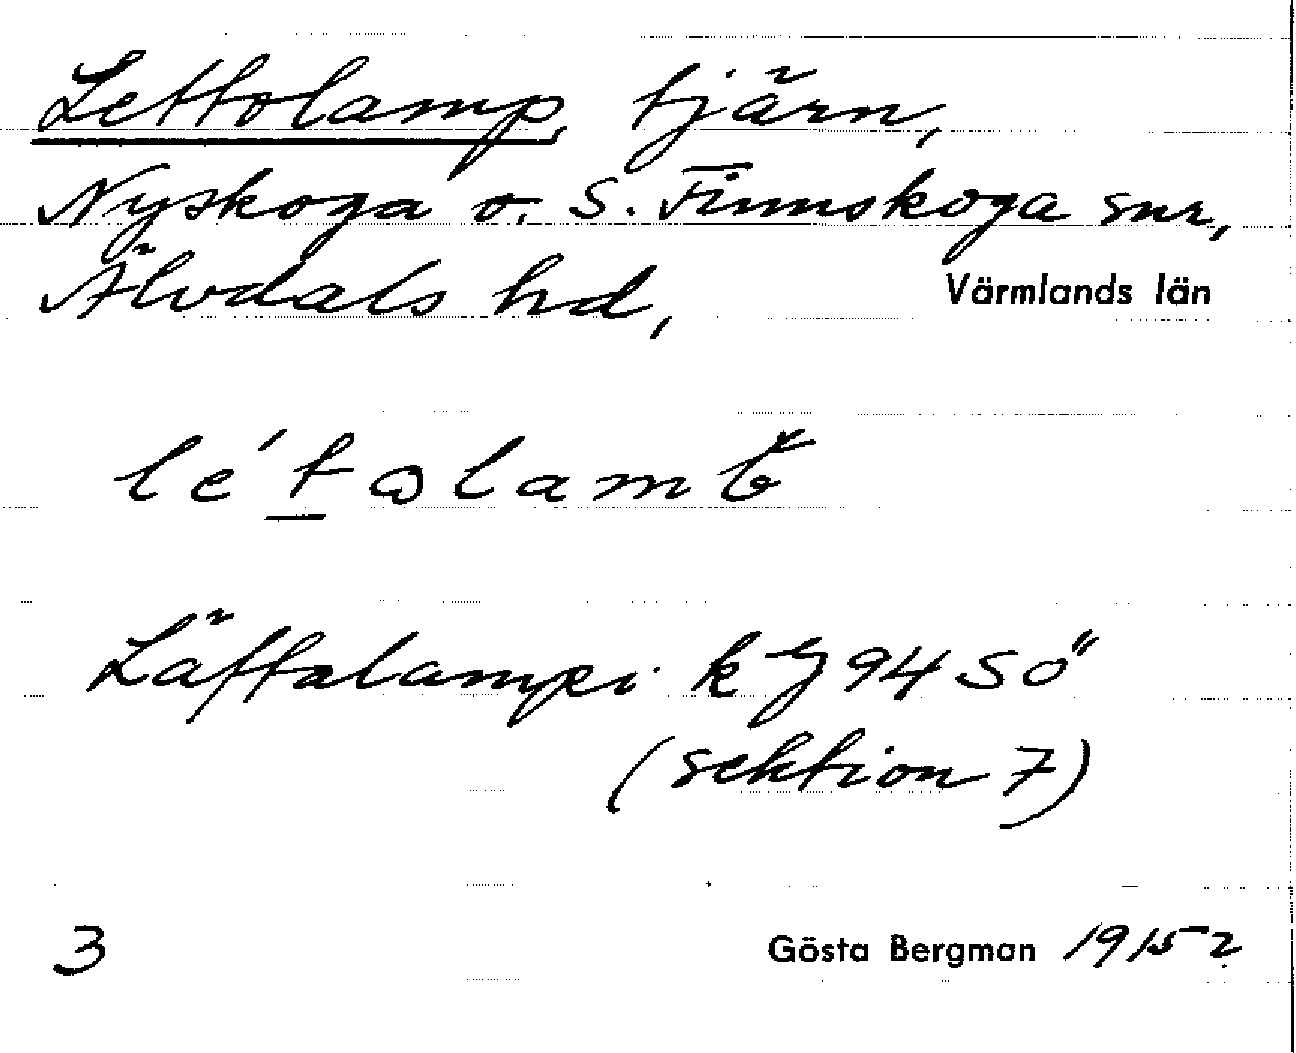 Lettolamp, tjärn,
Nyskoga o. S. Finnskoga snr,
Älvdals hd, Värmlands län
Läffalampi k 94 SÖ
(sektion 7)
3 Gösta Bergman 1915 2